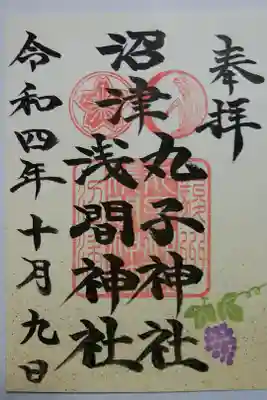 奉拝
沼津
丸子神社
浅間神社
令和四年十月九日